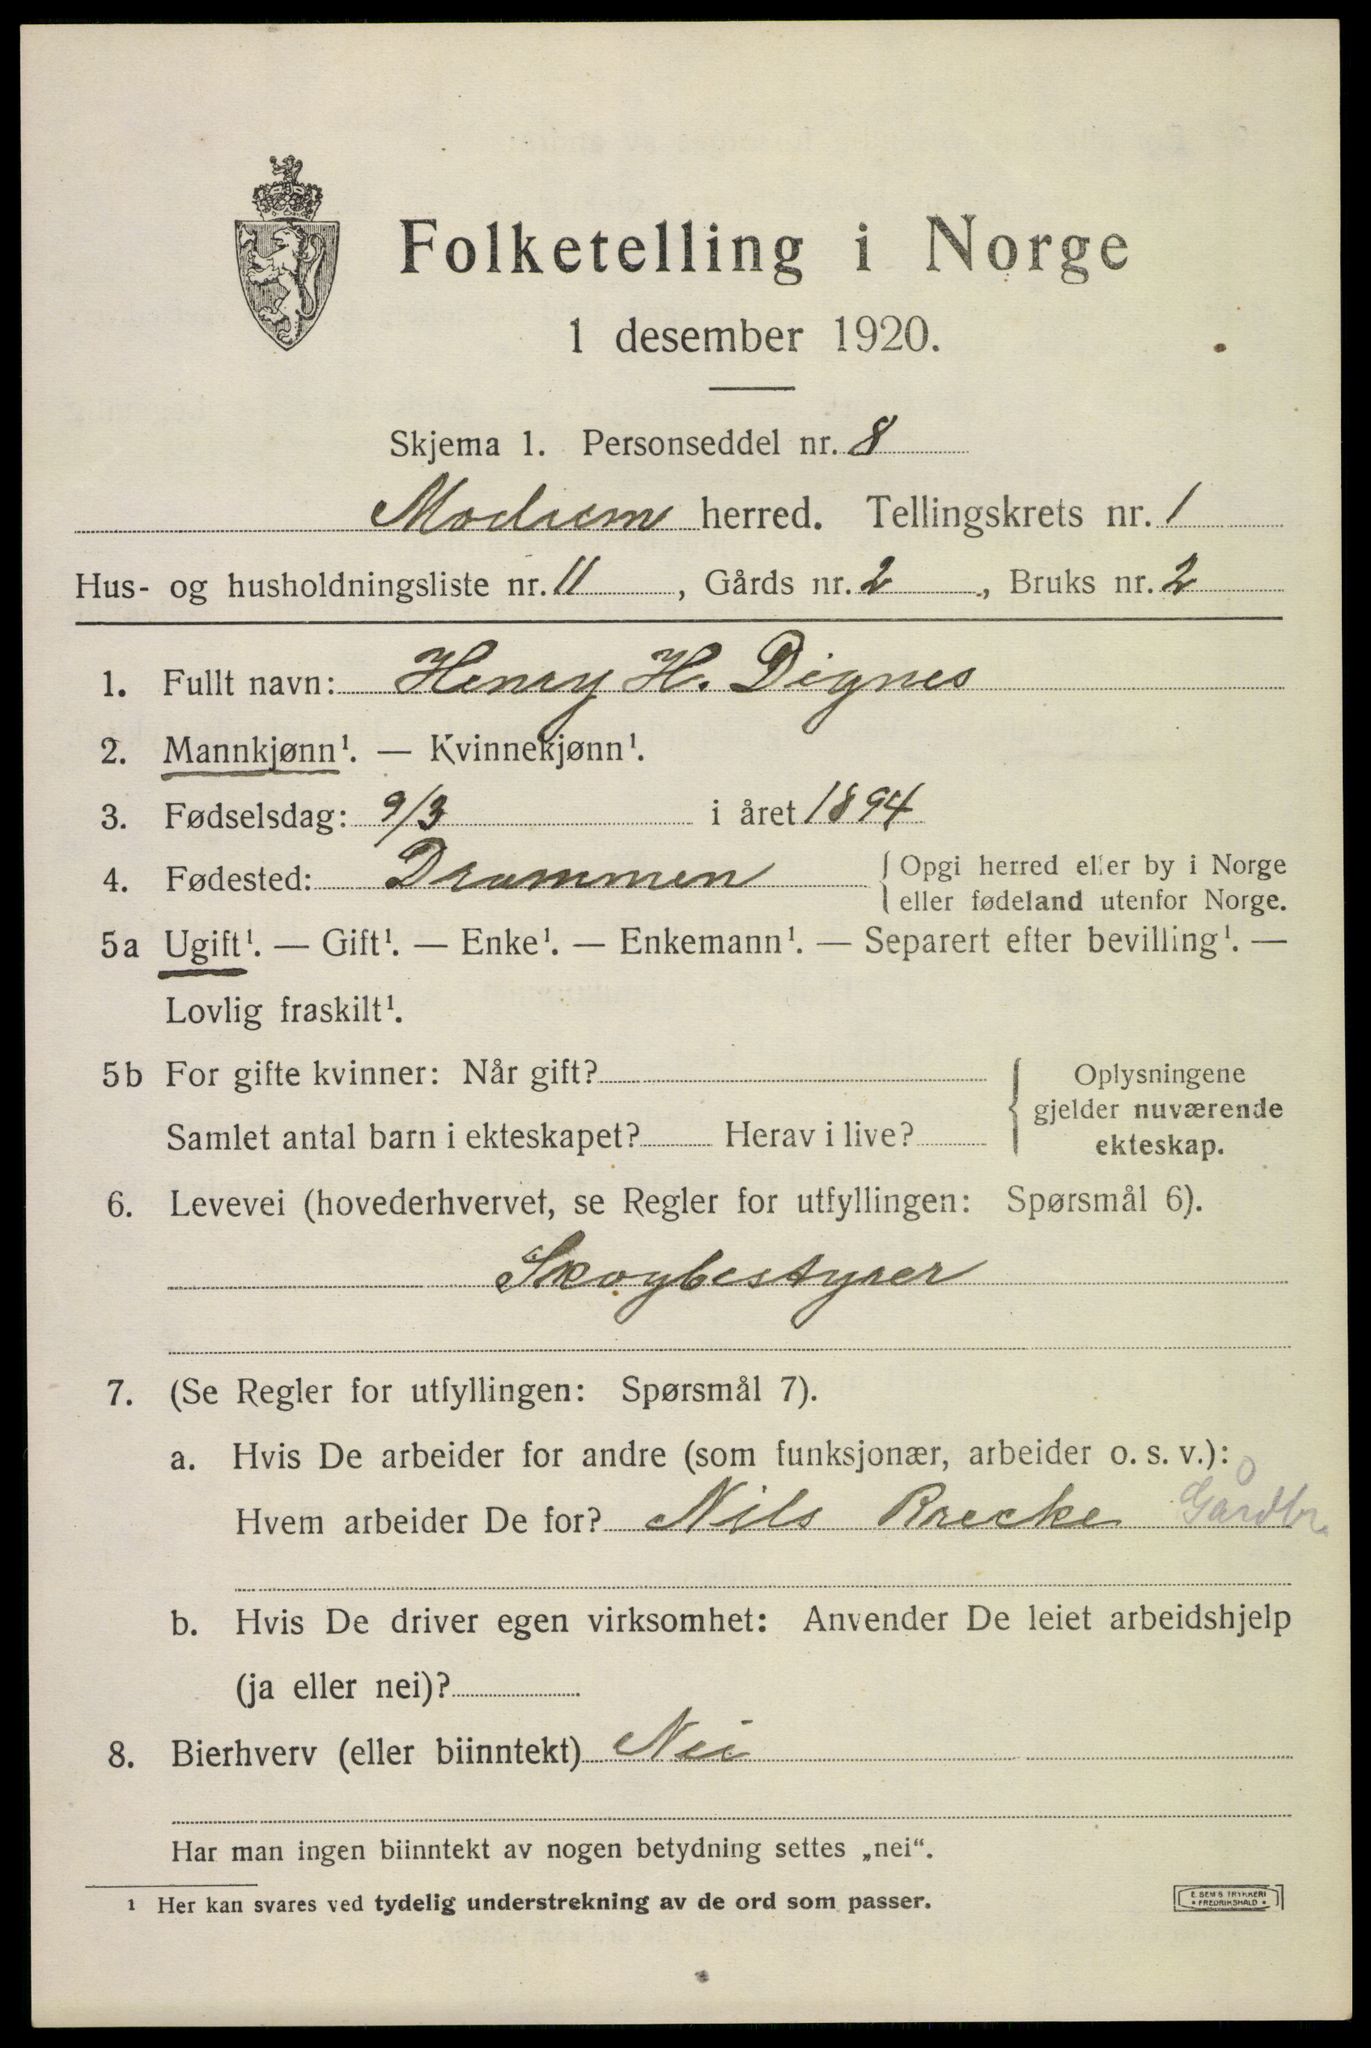 Folketelling i Norge
1 desember 1920.
Skjema 1. Personseddel nr. 8
Modum herred. Tellingskrets nr. 1
Hus- og husholdningsliste nr. 11, Gårds nr. 2, Bruks nr. 2
1. Fullt navn: Henry H. Dignes
2. Mannkjønn¹. — Kvinnekjønn¹.
3. Fødselsdag: 9/3 i året 1894
4. Fødested: Drammen {Opgi herred eller by i Norge
eller fødeland utenfor Norge.
5a Ugift¹. — Gift¹. — Enke¹. — Enkemann¹. — Separert efter bevilling¹. —
Lovlig fraskilt¹.
5b For gifte kvinner: Når gift? { Oplysningene
gjelder nuværende
Samlet antal barn i ekteskapet? Herav i live? ekteskap.
6. Levevei (hovederhvervet, se Regler for utfyllingen: Spørsmål 6).
Skogbestyrer
7. (Se Regler for utfyllingen: Spørsmål 7).
a. Hvis De arbeider for andre (som funksjonær, arbeider o. s. v.):
Hvem arbeider De for? Nils Brecke Gårdbr.
b. Hvis De driver egen virksomhet: Anvender De leiet arbeidshjelp
(ja eller nei)?
8. Bierhverv (eller biinntekt) Nei
Har man ingen biinntekt av nogen betydning settes „nei“.
¹ Her kan svares ved tydelig understrekning av de ord som passer.
E. SEM'S TRYKKERI
• FREDRIKSHALD •